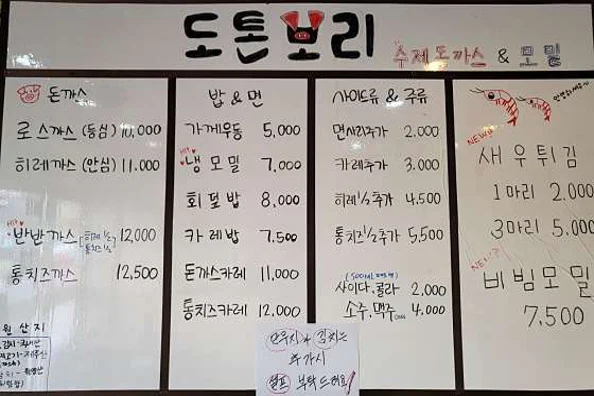 도톤보리
수제돈까스 & 모밀
돈까스
로스까스 (등심) 10,000
히레까스 (안심) 11.000
Hit
반반까스 [히레 1/2 통치즈 1/2] 12,000
통치즈까스 12,500
원산지
밥 & 면
가께우동 5,000
Hit
냉모밀 7,000
회덮밥 8,000
카레밥 7,500
돈까스카레 11,000
통치즈카레 12,000
사이드류 & 주류
면사리추가 2.000
카레추가 3.000
히레1/2추가 4.500
통치즈1/2추가 5,500
사이다.콜라 2,000
소주.맥주 4,000
NEW!!
새우튀김
1마리 2.000
3마리 5.000
NEW!!
비빔모밀
7,500
단무지 & 김치는
추가시
셀프 부탁드려요!